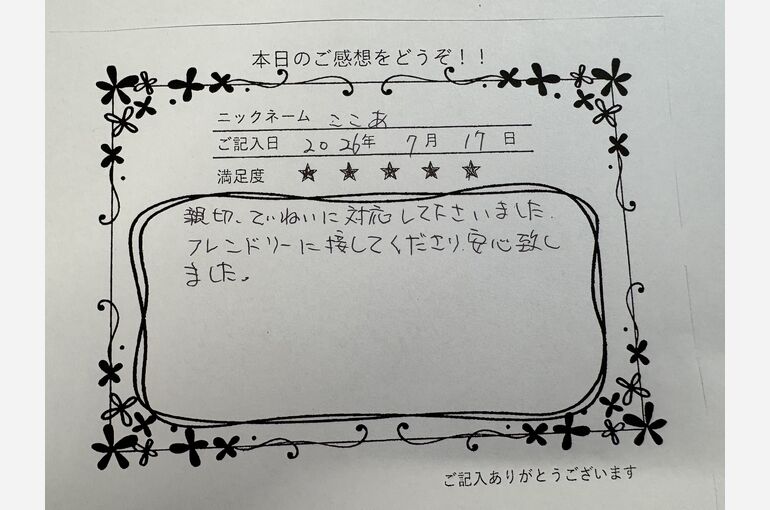 本日のご感想をどうぞ！！
ニックネーム ここあ
ご記入日 2026年 7月 17日
満足度 ★ ★ ★ ★ ★
親切、ていねいに対応して下さいました。
フレンドリーに接してくださり、安心致し
ました。
ご記入ありがとうございます